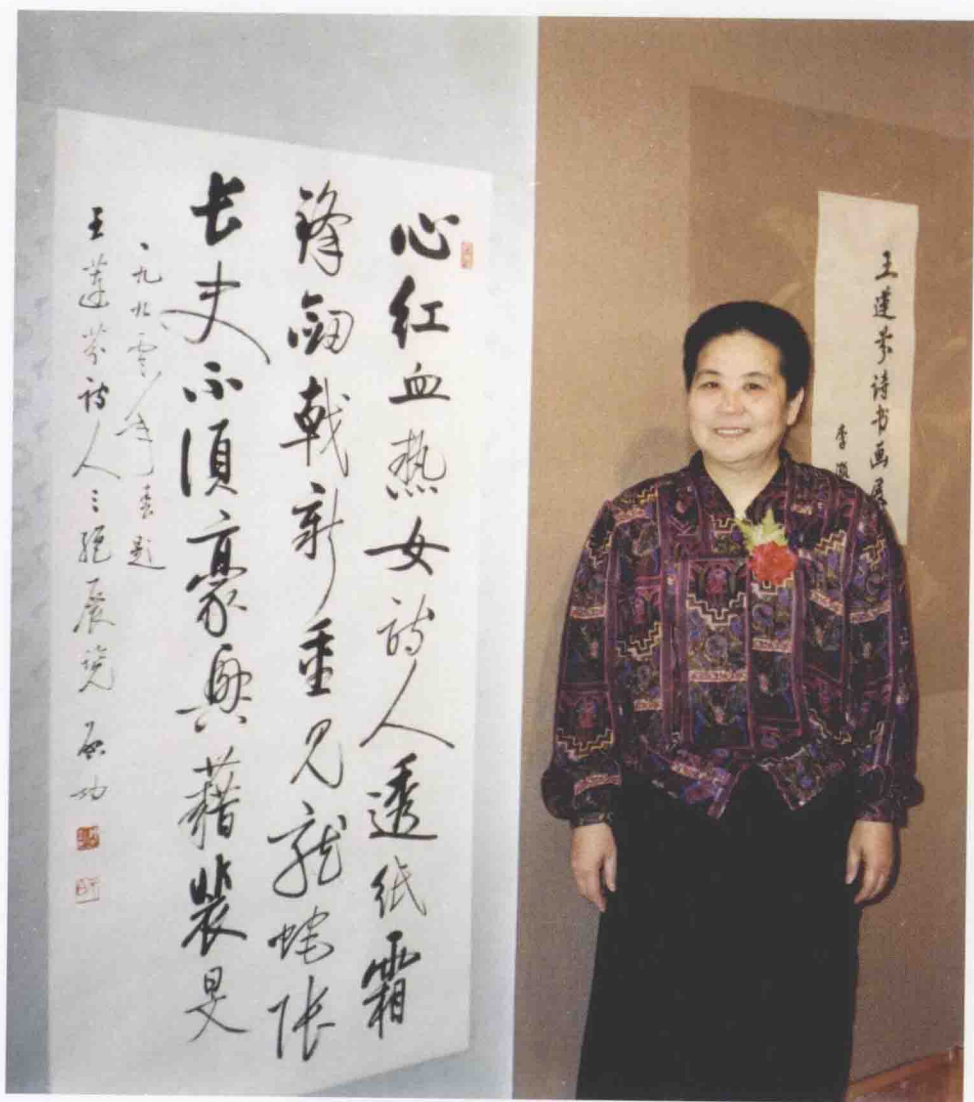 心红血热女诗人透纸霜
锋劒戟新重见龙蛇张
长史不須豪興藉裴旻
一九九零年春题
王莲芬诗人三绝展览 启功
王莲芬诗书画展
李